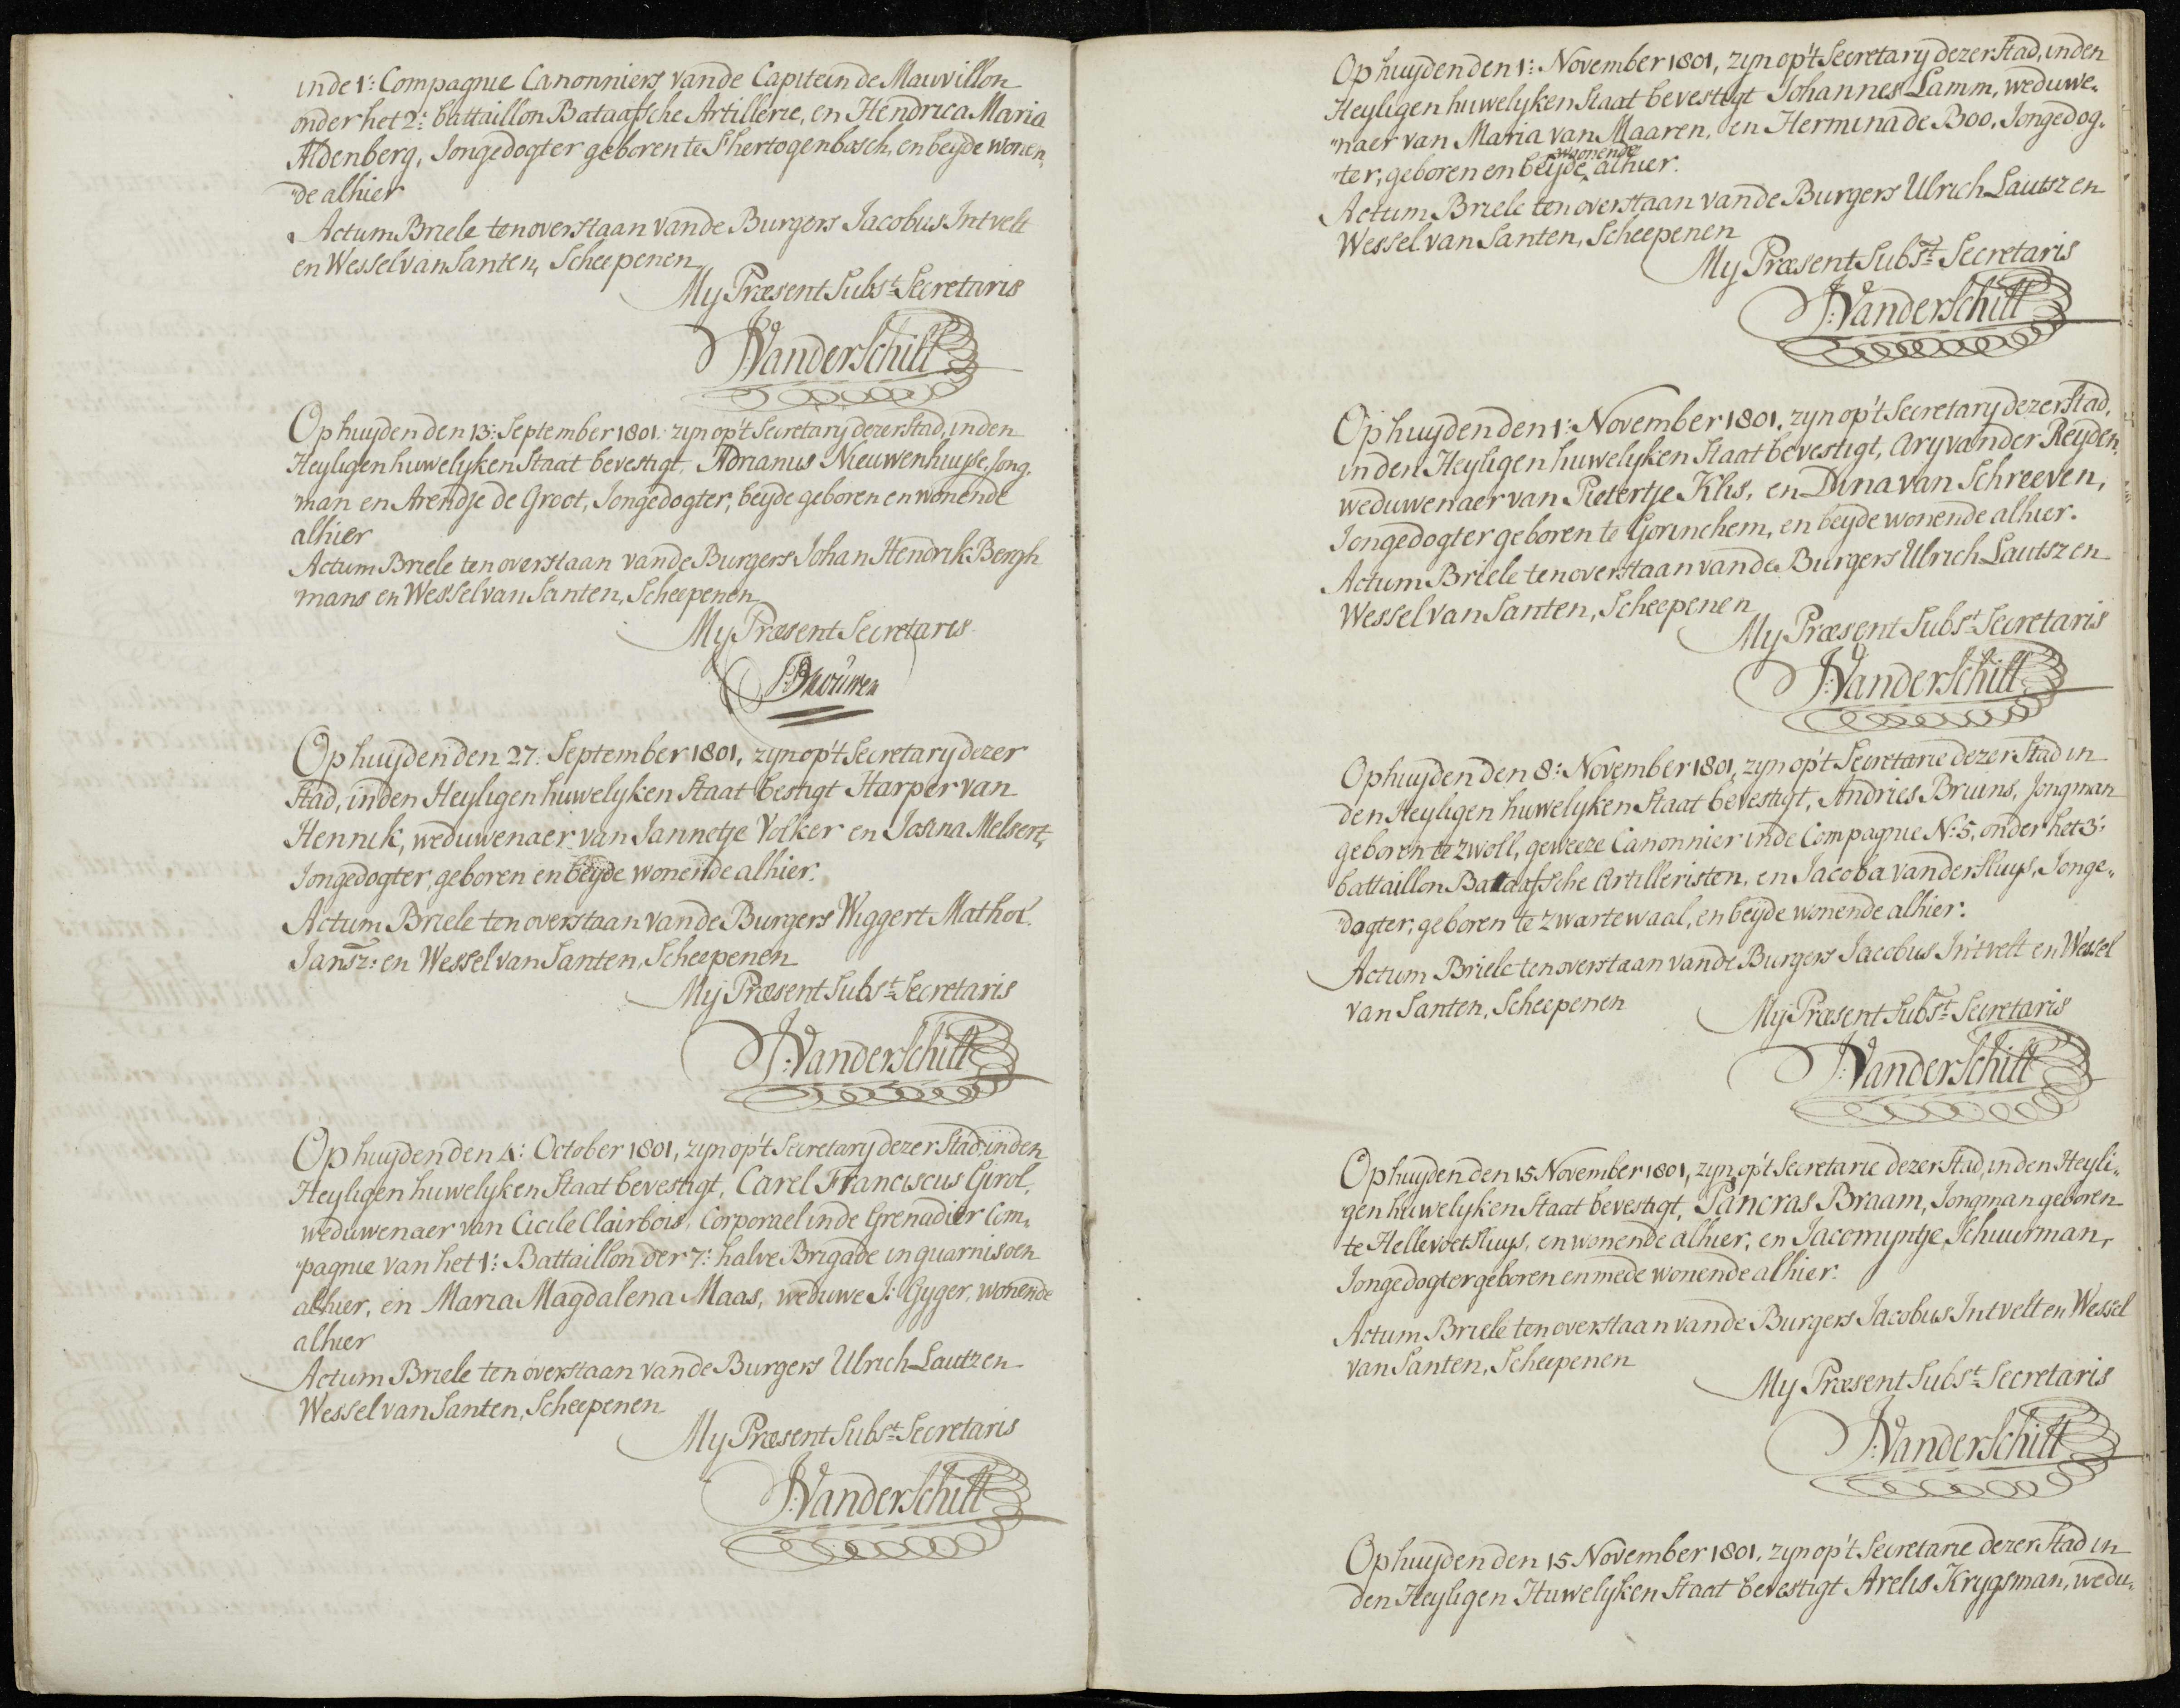 inde 1: Compagnie Canonniers, vande Capitein de Mauvillon
onder het 2: battaillon Bataafsche Artillerie, en Hendrica Maria
Aldenberg, Jongedogter geboren te S'hertogenbosch, en beyde wonen„
"de alhier
Actum Briele ten overstaan vande Burgers Jacobus Intvelt
en Wessel van Santen, Scheepenen
My Præsent Subst: Secretaris
J: Vanderschilt
Op huyden den 13: September 1801. zyn op't Secretary dezer Stad, in den
Heyligen huwelyken Staat bevestigt, Adrianus Nieuwenhuyse, Jong.
man en Arendje de Groot, Jongedogter, beyde geboren en wonende
alhier
Actum Briele ten overstaan vande Burgers Johan Hendrik Bergh
mans en Wessel van Santen, Scheepenen
My Præsent Secretaris
Op huyden den 27: September 1801, zyn op't Secretary dezer
Stad, in den Heyligen huwelyken Staat bestigt Harper van
Hennik, weduwenaer van Jannetje Volker en Josina Melsert,
Jongedogter, geboren en beyde wonende alhier.
Actum Briele ten overstaan vande Burgers Wiggert Mathot
Jansz: en Wessel van Santen, Scheepenen
My Præsent Subst: Secretaris
J: Vanderschilt
Op huyden den 4: October 1801, zyn op't Secretary dezer Stad, in den
Heyligen huwelyken Staat bevestigt, Carel Franciscus Girol,
weduwenaer van Cicile Clairbois, Corporael inde Grenadier Com„
"pagnie van het 1: Battaillon der 7: halve Brigade in guarnisoen
alhier, en Maria Magdalena Maas, weduwe J: Gyger, wonende
alhier
Actum Briele ten overstaan vande Burgers Ulrich Lautz en
Wessel van Santen, Scheepenen
My Præsent Subst: Secretaris
J: Vanderschilt
Op huyden den 1: November 1801, zyn op't Secretary dezer Stad, in den
Heyligen huwelyken Staat bevestigt Johannes Lamm, weduwe„
"naer van Maria van Maaren, en Hermina de Boo, Jongedog„
"ter, geboren en beyde wonende alhier.
Actum Briele ten overstaan vande Burgers Ulrich Lautsz en
Wessel van Santen, Scheepenen
My Præsent Subst: Secretaris
J: Vanderschilt
Op huyden den 1: November 1801, zyn op't Secretary dezer Stad,
in den Heyligen huwelyken Staat bevestigt, Ary vander Reyden,
weduwenaer van Pietertje Klis, en Dina van Schreeven,
Jongedogter geboren te Gorinchem, en beyde wonende alhier.
Actum Briele ten overstaan vande Burgers Ulrich Lautsz en
Wessel van Santen, Scheepenen
My Præsent Subst: Secretaris
J: Vanderschilt
Op huyden den 8: November 1801, zyn op't Secretarie dezer Stad in
den Heyligen huwelyken Staat bevestigt, Andries Bruins, Jongman
geboren te Zwoll, geweeze Canonnier inde Compagnie N: 5, onder het 3:
battaillon Bataafsche Artilleristen, en Jacoba vander Sluys, Jonge„
"dogter, geboren te Zwartewaal, en beyde wonende alhier.
Actum Briele ten overstaan vande Burgers Jacobus In'tvelt en Wessel
van Santen, Scheepenen
My Præsent Subst: Secretaris
J: Vanderschilt
Op huyden den 15 November 1801, zyn op't Secretarie dezer Stad, in den Heyli„
"gen huwelyken Staat bevestigt, Pancras Braam, Jongman geboren
te Hellevoetsluys, en wonende alhier, en Jacomyntje Schuurman,
Jongedogter geboren en mede wonende alhier.
Actum Briele ten overstaan vande Burgers Jacobus Intvelt en Wessel
van Santen, Scheepenen
My Præsent Subst: Secretaris
J: Vanderschilt
Op huyden den 15 November 1801, zyn op't Secretarie dezer Stad in
den Heyligen Huwelyken Staat bevestigt Arelis Krygsman, wedu„